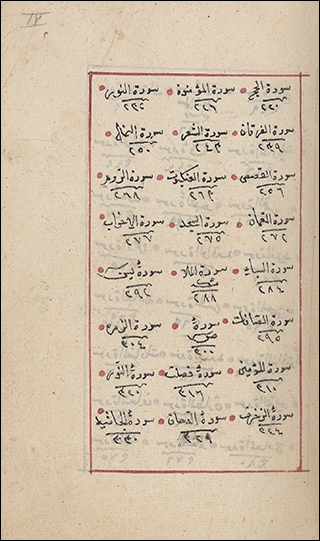 سورة الحج سورة المؤمنوة سورة النور
٢٢٠ ٢٢٦ ٢٣٢
سورة الفرقان سورة الشعر سورة النمل
٢٣٩ ٢٤٣ ٢٥٠
سورة القصص سورة العنكبوت سورة الروم
٢٥٦ ٢٦٣ ٢٦٨
سورة لقمان سورة السجد سورة الاحزاب
٢٧٢ ٢٧٥ ٢٧٧
سورة السباء سورة الملا سورة يس
ئكه
٢٨٤ ٢٨٨ ٢٩٢
سورة الصافات سورة سورة الزمر
ص
٢٩٥ ٣٠٠ ٣٠٤
سورة المؤمن سورة فصلت سورة
٣١٠ ٣١٦ ٣٢٠
سورة الزخرف سورة الدخان سورة الجاثيه
٣٢٤ ٣٢٩ ٣٣٠